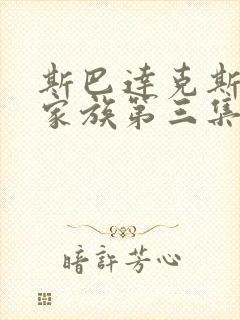 斯巴達克斯
家族第三集
暗許芳心